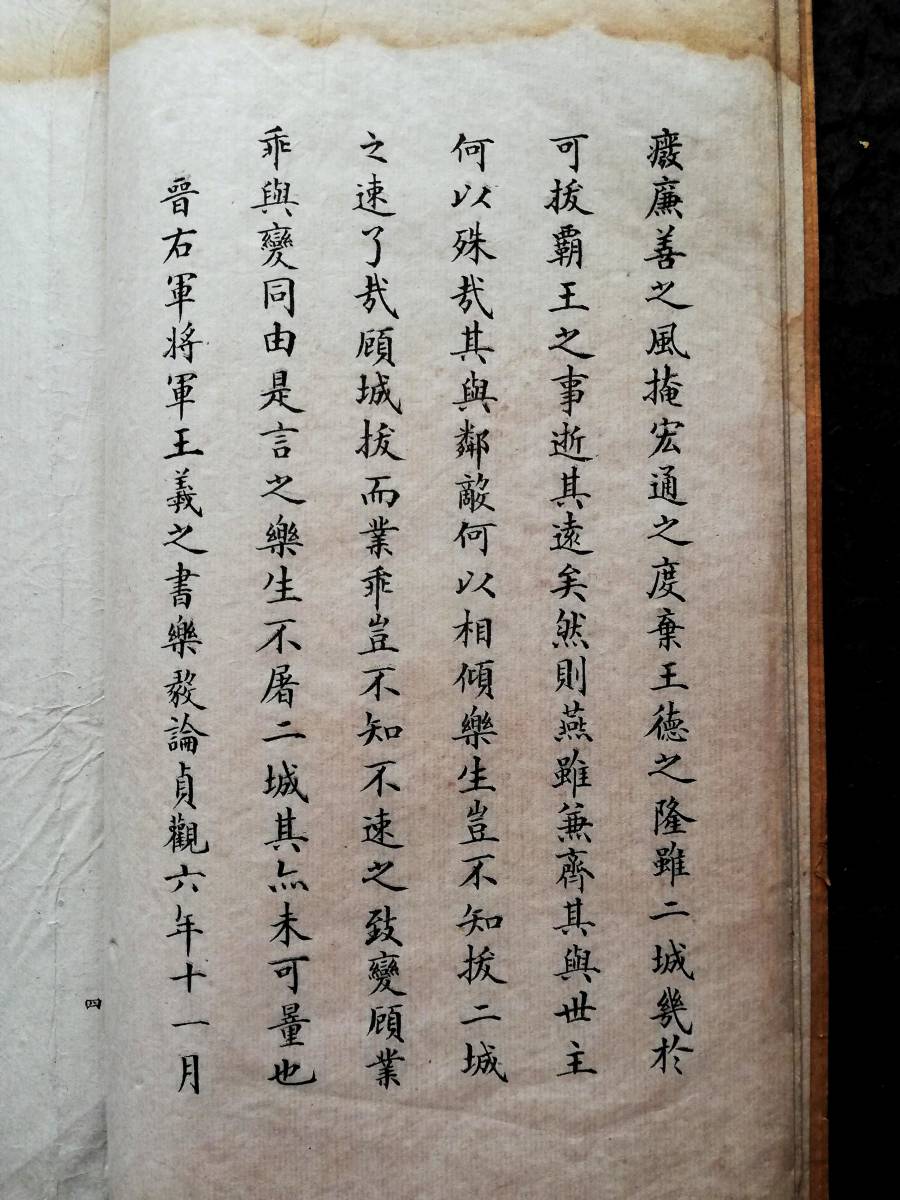 癈廉善之風掩宏通之度棄王德之隆雖二城幾於
可拔霸王之事逝其遠矣然則燕雖兼齊其與世主
何以殊哉其與鄰敵何以相傾樂生豈不知拔二城
之速了哉顧城拔而業乖豈不知不速之致變顧業
乖與變同由是言之樂生不屠二城其亦未可量也
晉右軍將軍王羲之書樂毅論貞觀六年十一月
四